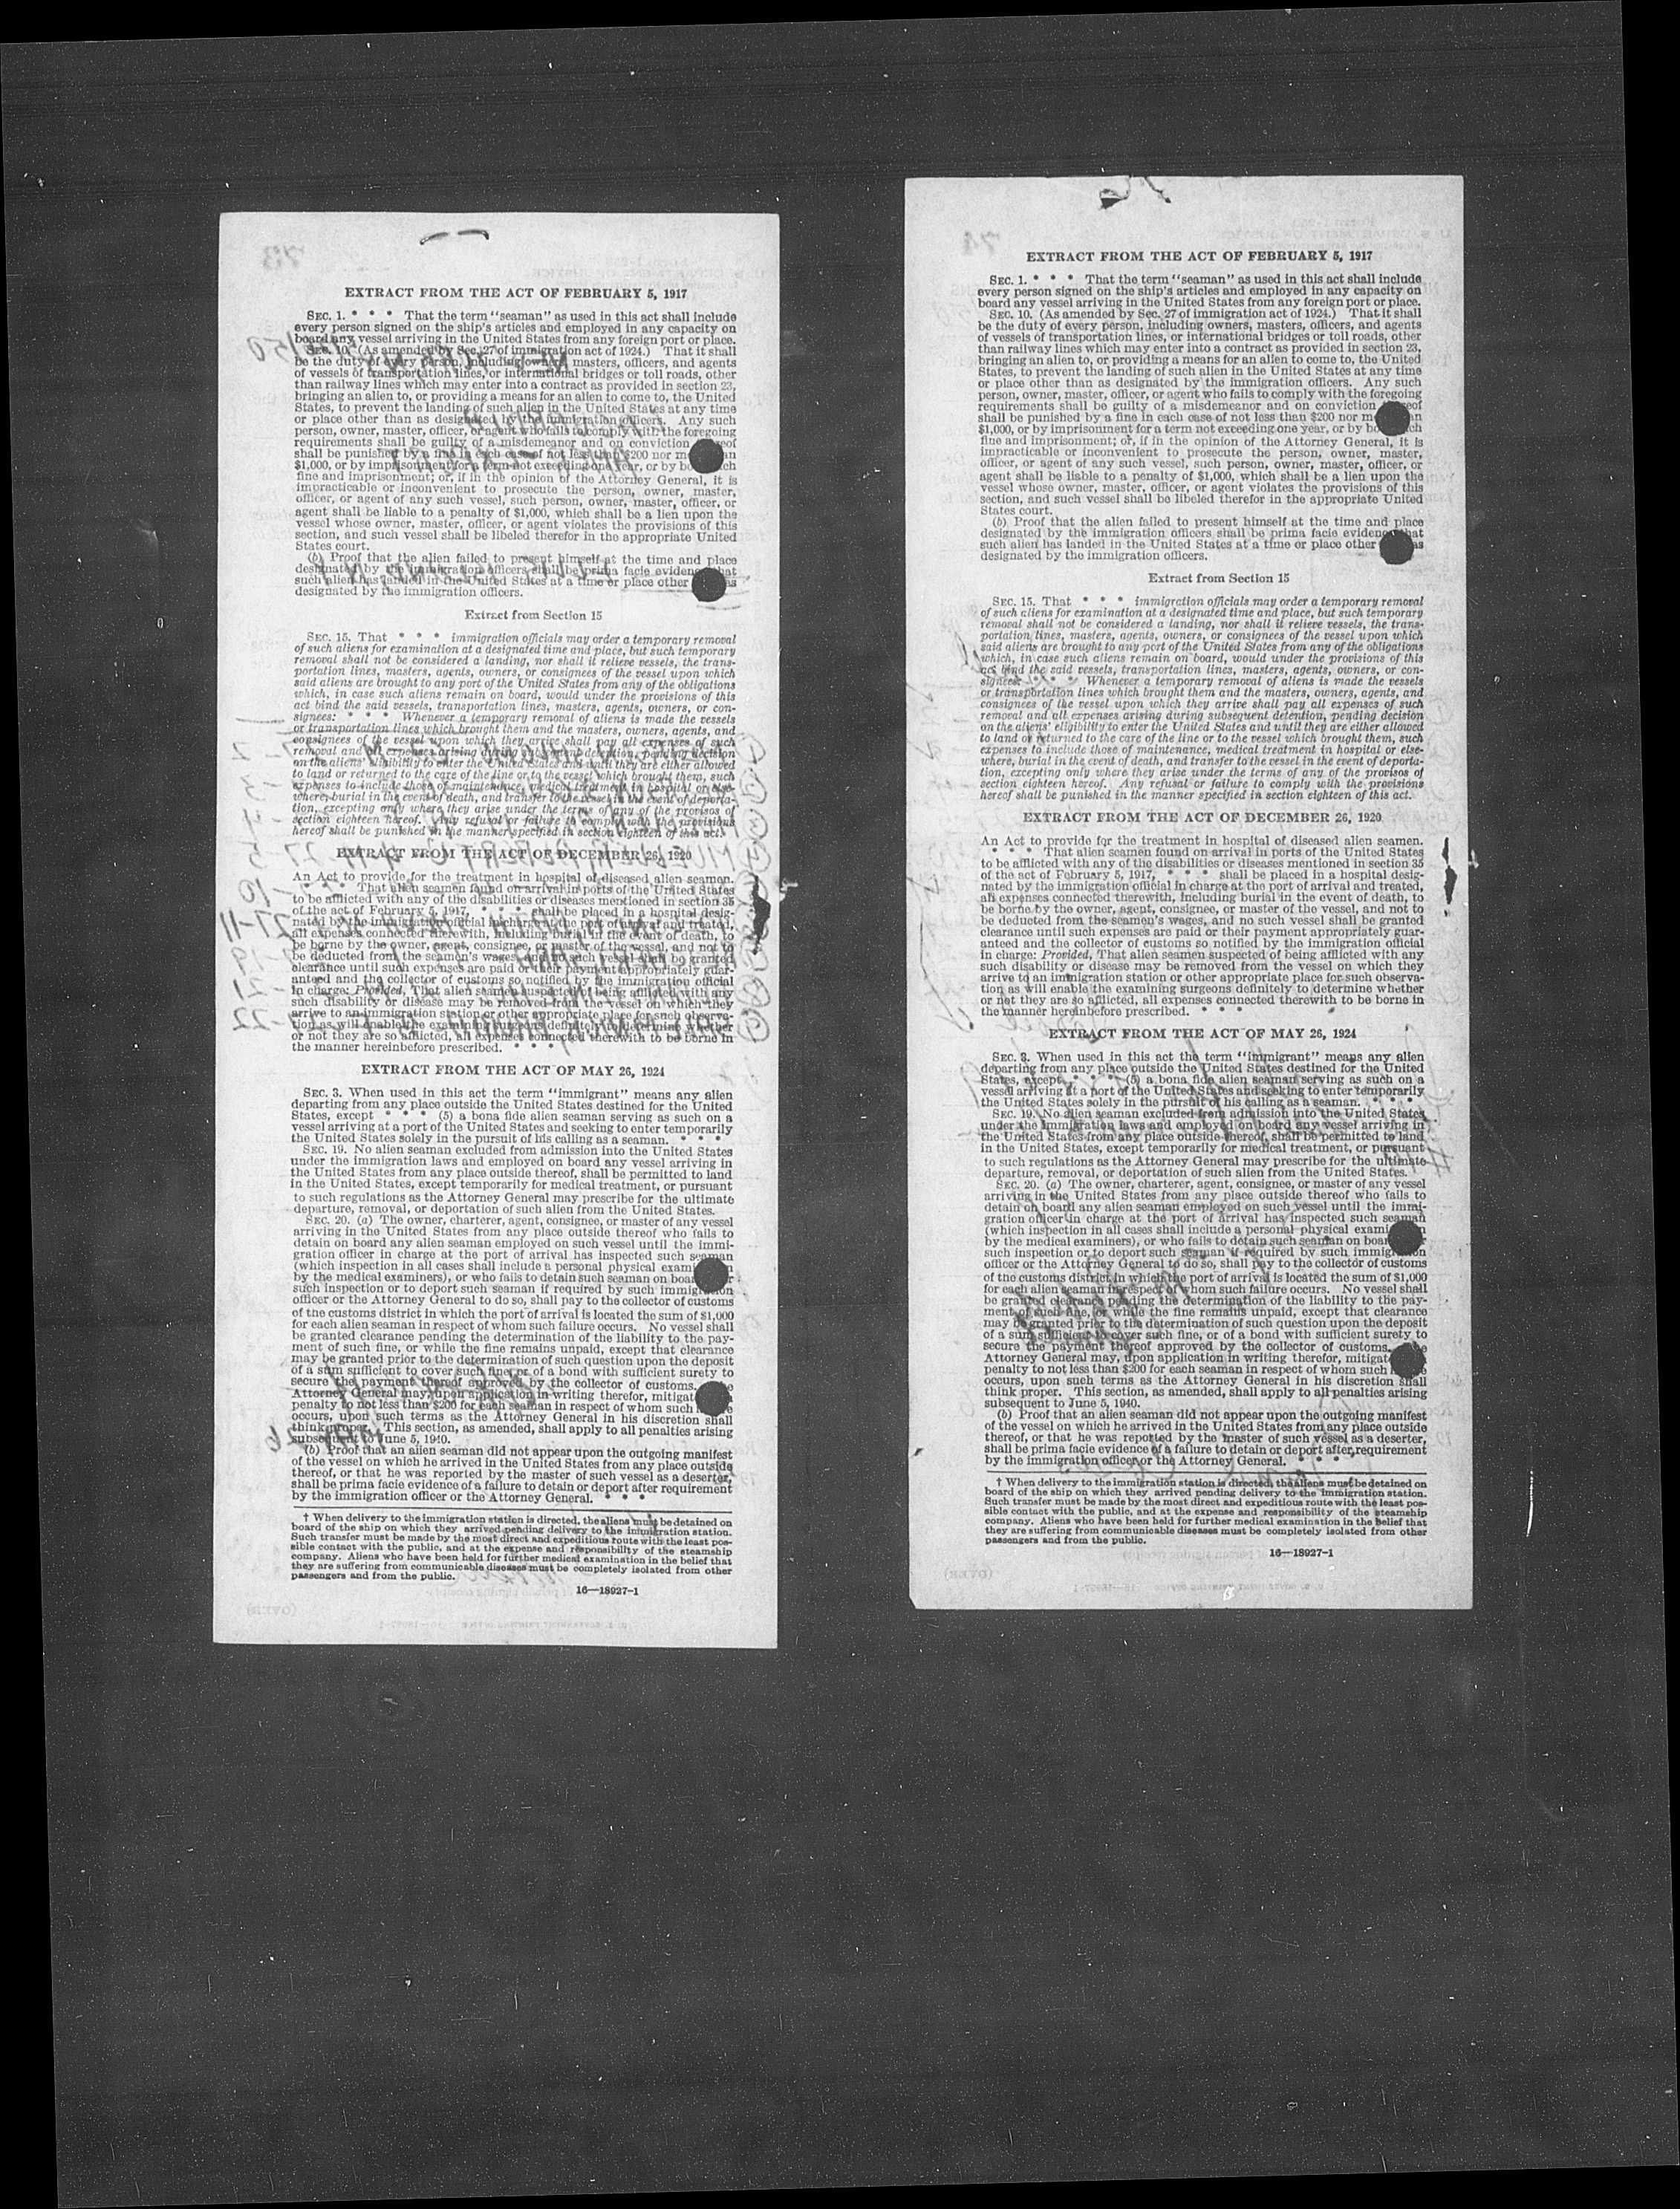 EXTRACT FROM THE ACT OF FEBRUARY 5, 1917
SEC. 1. * * * That the term "seaman" as used in this act shall include
every person signed on the ship's articles and employed in any capacity on
board any vessel arriving in the United States from any foreign port or place.
SEC. 10. (As amended by Sec. 27 of immigration act of 1924.) That it shall
be the duty of every person, including owners, masters, officers, and agents
of vessels of transportation lines, or international bridges or toll roads, other
than railway lines which may enter into a contract as provided in section 23,
bringing an alien to, or providing a means for an alien to come to, the United
States, to prevent the landing of such alien in the United States at any time
or place other than as designated by the immigration officers. Any such
person, owner, master, officer, or agent who fails to comply with the foregoing
requirements shall be guilty of a misdemeanor and on conviction
shall be punished by a fine in each case of not less than $200 nor
$1,000, or by imprisonment for a term not exceeding one year, or by
fine and imprisonment; or, if in the opinion of the Attorney General, it is
impracticable or inconvenient to prosecute the person, owner, master,
officer, or agent of any such vessel, such person, owner, master, officer, or
agent shall be liable to a penalty of $1,000, which shall be a lien upon the
vessel whose owner, master, officer, or agent violates the provisions of this
section, and such vessel shall be libeled therefor in the appropriate United
States court.
(b) Proof that the alien failed to present himself at the time and place
designated by the immigration officers shall be prima facie
such alien has landed in the United States at a time or place other
designated by the immigration officers.
Extract from Section 15
SEC. 15. That * * * immigration officials may order a temporary removal
of such aliens for examination at a designated time and place, but such temporary
removal shall not be considered a landing, nor shall it relieve vessels, the trans-
portation lines, masters, agents, owners, or consignees of the vessel upon which
said aliens are brought to any port of the United States from any of the obligations
which, in case such aliens remain on board, would under the provisions of this
act bind the said vessels, transportation lines, masters, agents, owners, or con-
signees: * * * Whenever a temporary removal of aliens is made the vessels
or transportation lines which brought them and the masters, owners, agents, and
consignees of the vessel upon which they arrive shall pay all expenses of such
removal and all expenses arising during subsequent detention, pending decision
on the aliens' eligibility to enter the United States and until they are either allowed
to land or returned to the care of the line or to the vessel which brought them, such
expenses to include those of maintenance, medical treatment in hospital or else-
where, burial in the event of death, and transfer to the vessel in the event of deporta-
tion, excepting only where they arise under the terms of any of the provisos of
section eighteen hereof. Any refusal or failure to comply with the provisions
hereof shall be punished in the manner specified in section eighteen of this act.
EXTRACT FROM THE ACT OF DECEMBER 26, 1920
An Act to provide for the treatment in hospital of diseased alien seamen.
* * * That alien seamen found on arrival in ports of the United States
to be afflicted with any of the disabilities or diseases mentioned in section 35
of the act of February 5, 1917, * * * shall be placed in a hospital desig-
nated by the immigration official in charge at the port of arrival and treated,
all expenses connected therewith, including burial in the event of death, to
be borne by the owner, agent, consignee, or master of the vessel, and not to
be deducted from the seamen's wages, and no such vessel shall be granted
clearance until such expenses are paid or their payment appropriately guar-
anteed and the collector of customs so notified by the immigration official
in charge: Provided, That alien seamen suspected of being afflicted with any
such disability or disease may be removed from the vessel on which they
arrive to an immigration station or other appropriate place for such observa-
tion as will enable the examining surgeons definitely to determine whether
or not they are so afflicted, all expenses connected therewith to be borne in
the manner hereinbefore prescribed. * * *
EXTRACT FROM THE ACT OF MAY 26, 1924
SEC. 3. When used in this act the term "immigrant" means any alien
departing from any place outside the United States destined for the United
States, except * * * (5) a bona fide alien seaman serving as such on a
vessel arriving at a port of the United States and seeking to enter temporarily
the United States solely in the pursuit of his calling as a seaman. * * *
SEC. 19. No alien seaman excluded from admission into the United States
under the immigration laws and employed on board any vessel arriving in
the United States from any place outside thereof, shall be permitted to land
in the United States, except temporarily for medical treatment, or pursuant
to such regulations as the Attorney General may prescribe for the ultimate
departure, removal, or deportation of such alien from the United States.
SEC. 20. (a) The owner, charterer, agent, consignee, or master of any vessel
arriving in the United States from any place outside thereof who fails to
detain on board any alien seaman employed on such vessel until the immi-
gration officer in charge at the port of arrival has inspected such seaman
(which inspection in all cases shall include a personal physical
by the medical examiners), or who fails to detain such seaman on
such inspection or to deport such seaman if required by such
officer or the Attorney General to do so, shall pay to the collector of customs
of the customs district in which the port of arrival is located the sum of $1,000
for each alien seaman in respect of whom such failure occurs. No vessel shall
be granted clearance pending the determination of the liability to the pay-
ment of such fine, or while the fine remains unpaid, except that clearance
may be granted prior to the determination of such question upon the deposit
of a sum sufficient to cover such fine, or of a bond with sufficient surety to
secure the payment thereof approved by the collector of customs.
Attorney General may, upon application in writing therefor,
penalty to not less than $200 for each seaman in respect of whom such
occurs, upon such terms as the Attorney General in his discretion shall
think proper. This section, as amended, shall apply to all penalties arising
subsequent to June 5, 1940.
(b) Proof that an alien seaman did not appear upon the outgoing manifest
of the vessel on which he arrived in the United States from any place outside
thereof, or that he was reported by the master of such vessel as a deserter,
shall be prima facie evidence of a failure to detain or deport after requirement
by the immigration officer or the Attorney General. * * *
† When delivery to the immigration station is directed, the aliens must be detained on
board of the ship on which they arrived pending delivery to the immigration station.
Such transfer must be made by the most direct and expeditious route with the least pos-
sible contact with the public, and at the expense and responsibility of the steamship
company. Aliens who have been held for further medical examination in the belief that
they are suffering from communicable diseases must be completely isolated from other
passengers and from the public.
16—18927-1
EXTRACT FROM THE ACT OF FEBRUARY 5, 1917
SEC. 1. * * * That the term "seaman" as used in this act shall include
every person signed on the ship's articles and employed in any capacity on
board any vessel arriving in the United States from any foreign port or place.
SEC. 10. (As amended by Sec. 27 of immigration act of 1924.) That it shall
be the duty of every person, including owners, masters, officers, and agents
of vessels of transportation lines, or international bridges or toll roads, other
than railway lines which may enter into a contract as provided in section 23,
bringing an alien to, or providing a means for an alien to come to, the United
States, to prevent the landing of such alien in the United States at any time
or place other than as designated by the immigration officers. Any such
person, owner, master, officer, or agent who fails to comply with the foregoing
requirements shall be guilty of a misdemeanor and on conviction
shall be punished by a fine in each case of not less than $200 nor
$1,000, or by imprisonment for a term not exceeding one year, or by
fine and imprisonment; or, if in the opinion of the Attorney General, it is
impracticable or inconvenient to prosecute the person, owner, master,
officer, or agent of any such vessel, such person, owner, master, officer, or
agent shall be liable to a penalty of $1,000, which shall be a lien upon the
vessel whose owner, master, officer, or agent violates the provisions of this
section, and such vessel shall be libeled therefor in the appropriate United
States court.
(b) Proof that the alien failed to present himself at the time and place
designated by the immigration officers shall be prima facie
such alien has landed in the United States at a time or place other
designated by the immigration officers.
Extract from Section 15
SEC. 15. That * * * immigration officials may order a temporary removal
of such aliens for examination at a designated time and place, but such temporary
removal shall not be considered a landing, nor shall it relieve vessels, the trans-
portation lines, masters, agents, owners, or consignees of the vessel upon which
said aliens are brought to any port of the United States from any of the obligations
which, in case such aliens remain on board, would under the provisions of this
act bind the said vessels, transportation lines, masters, agents, owners, or con-
signees: * * * Whenever a temporary removal of aliens is made the vessels
or transportation lines which brought them and the masters, owners, agents, and
consignees of the vessel upon which they arrive shall pay all expenses of such
removal and all expenses arising during subsequent detention, pending decision
on the aliens' eligibility to enter the United States and until they are either allowed
to land or returned to the care of the line or to the vessel which brought them, such
expenses to include those of maintenance, medical treatment in hospital or else-
where, burial in the event of death, and transfer to the vessel in the event of deporta-
tion, excepting only where they arise under the terms of any of the provisos of
section eighteen hereof. Any refusal or failure to comply with the provisions
hereof shall be punished in the manner specified in section eighteen of this act.
EXTRACT FROM THE ACT OF DECEMBER 26, 1920
An Act to provide for the treatment in hospital of diseased alien seamen.
* * * That alien seamen found on arrival in ports of the United States
to be afflicted with any of the disabilities or diseases mentioned in section 35
of the act of February 5, 1917, * * * shall be placed in a hospital desig-
nated by the immigration official in charge at the port of arrival and treated,
all expenses connected therewith, including burial in the event of death, to
be borne by the owner, agent, consignee, or master of the vessel, and not to
be deducted from the seamen's wages, and no such vessel shall be granted
clearance until such expenses are paid or their payment appropriately guar-
anteed and the collector of customs so notified by the immigration official
in charge: Provided, That alien seamen suspected of being afflicted with any
such disability or disease may be removed from the vessel on which they
arrive to an immigration station or other appropriate place for such observa-
tion as will enable the examining surgeons definitely to determine whether
or not they are so afflicted, all expenses connected therewith to be borne in
the manner hereinbefore prescribed. * * *
EXTRACT FROM THE ACT OF MAY 26, 1924
SEC. 3. When used in this act the term "immigrant" means any alien
departing from any place outside the United States destined for the United
States, except * * * (5) a bona fide alien seaman serving as such on a
vessel arriving at a port of the United States and seeking to enter temporarily
the United States solely in the pursuit of his calling as a seaman. * * *
SEC. 19. No alien seaman excluded from admission into the United States
under the immigration laws and employed on board any vessel arriving in
the United States from any place outside thereof, shall be permitted to land
in the United States, except temporarily for medical treatment, or pursuant
to such regulations as the Attorney General may prescribe for the ultimate
departure, removal, or deportation of such alien from the United States.
SEC. 20. (a) The owner, charterer, agent, consignee, or master of any vessel
arriving in the United States from any place outside thereof who fails to
detain on board any alien seaman employed on such vessel until the immi-
gration officer in charge at the port of arrival has inspected such seaman
(which inspection in all cases shall include a personal physical
by the medical examiners), or who fails to detain such seaman on
such inspection or to deport such seaman if required by such
officer or the Attorney General to do so, shall pay to the collector of customs
of the customs district in which the port of arrival is located the sum of $1,000
for each alien seaman in respect of whom such failure occurs. No vessel shall
be granted clearance pending the determination of the liability to the pay-
ment of such fine, or while the fine remains unpaid, except that clearance
may be granted prior to the determination of such question upon the deposit
of a sum sufficient to cover such fine, or of a bond with sufficient surety to
secure the payment thereof approved by the collector of customs.
Attorney General may, upon application in writing therefor,
penalty to not less than $200 for each seaman in respect of whom such
occurs, upon such terms as the Attorney General in his discretion shall
think proper. This section, as amended, shall apply to all penalties arising
subsequent to June 5, 1940.
(b) Proof that an alien seaman did not appear upon the outgoing manifest
of the vessel on which he arrived in the United States from any place outside
thereof, or that he was reported by the master of such vessel as a deserter,
shall be prima facie evidence of a failure to detain or deport after requirement
by the immigration officer or the Attorney General. * * * *
† When delivery to the immigration station is directed, the aliens must be detained on
board of the ship on which they arrived pending delivery to the immigration station.
Such transfer must be made by the most direct and expeditious route with the least pos-
sible contact with the public, and at the expense and responsibility of the steamship
company. Aliens who have been held for further medical examination in the belief that
they are suffering from communicable diseases must be completely isolated from other
passengers and from the public.
16—18927-1